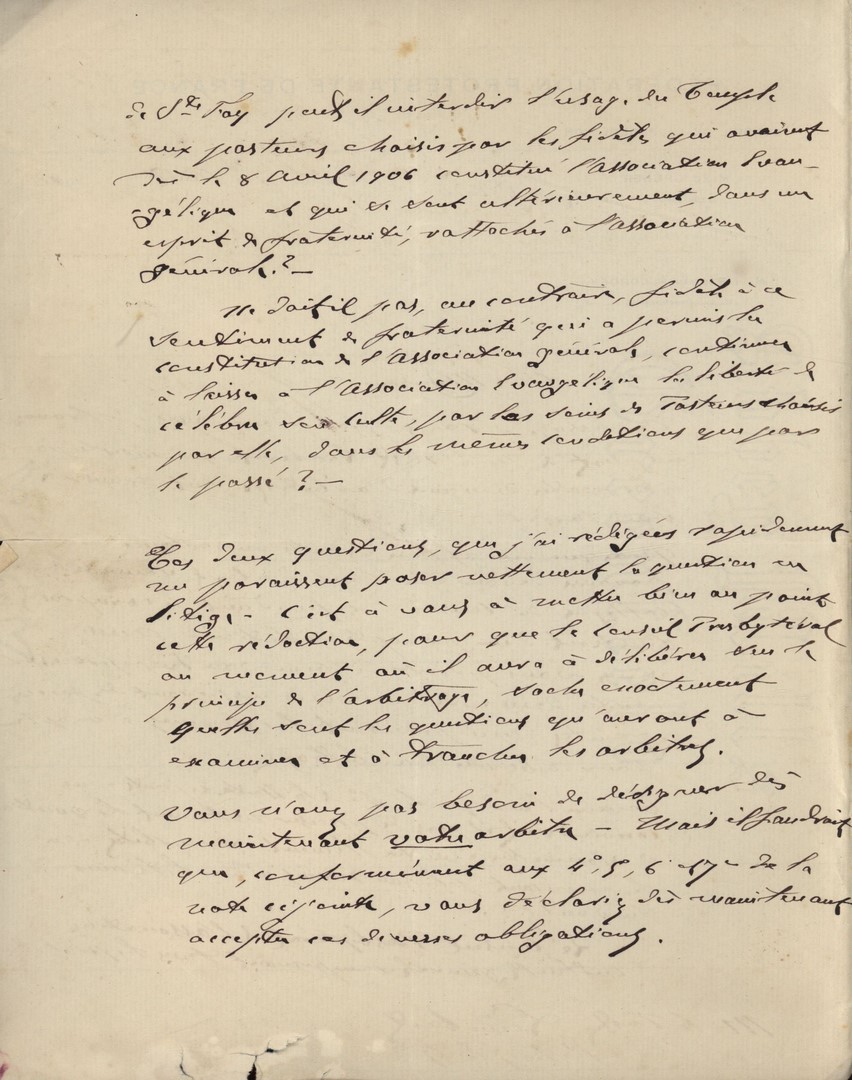 de Ste Foy peut-il interdire l'usage du Temple
aux pasteurs choisis par les fidèles qui avaient
dès le 8 Avril 1906 constitué l'Association Évan-
gélique et qui se sont ultérieurement, dans un
esprit de fraternité, rattachés à l'association
générale ? —
Ne doit il pas, au contraire, fidèle à ce
sentiment de fraternité qui a permis la
constitution de l'Association générale, continuer
à laisser à l'Association Évangélique la liberté de
célébrer son culte, par les soins de Pasteurs choisis
par elle, dans les mêmes conditions que par
le passé ? —
Ces deux questions, que j'ai rédigées rapidement
me paraissent poser nettement la question en
litige — C'est à vous à mettre bien au point
cette rédaction, pour que le Conseil Presbytéral
au moment où il aura à délibérer sur le
principe de l'arbitrage, sache exactement
quelles sont les questions qu'auront à
examiner et à trancher les arbitres.
Vous n'avez pas besoin de désigner dès
maintenant votre arbitre — Mais il faudrait
que, conformément aux 4°, 5, 6 et 7° de la
note ci jointe, vous déclariez dès maintenant
accepter ces diverses obligations.